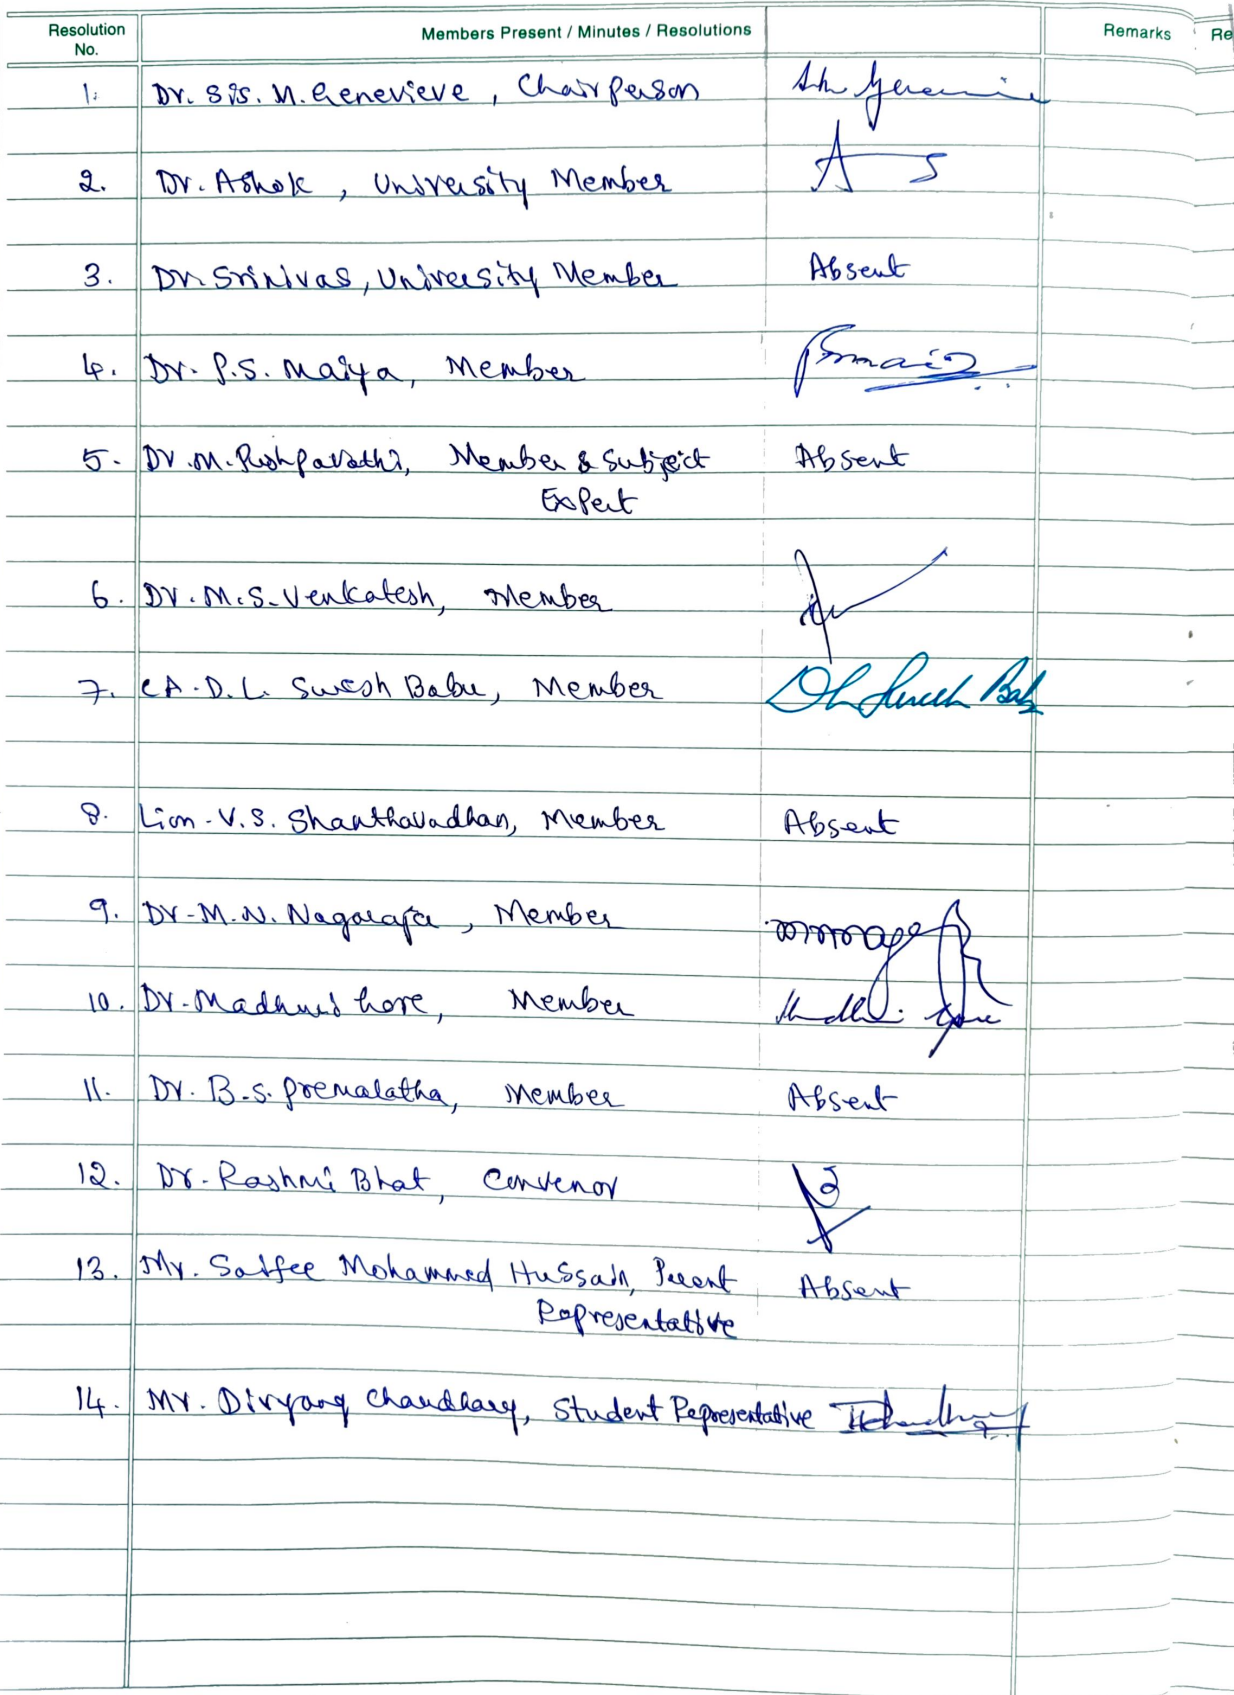 Resolution No. Members Present / Minutes / Resolutions Remarks Re
1. Dr. Sis. M. Genevieve, Chairperson
2. Dr. Ashok, University Member A S
3. Dr. Srinivas, University Member Absent
4. Dr. P.S. Maiya, Member
5. Dr. M. Pushpavathi, Member & Subject Absent
Expert
6. Dr. M.S. Venkatesh, Member
7. CA. D.L. Suresh Babu, Member DL Suresh Bab
8. Lion. V.S. Shanthavadhan, Member Absent
9. Dr. M.N. Nagaraja, Member
10. Dr. Madhuri Gore, Member
11. Dr. B.S. Premalatha, Member Absent
12. Dr. Rashmi Bhat, Convenor
13. Mr. Saifee Mohammed Hussain, Parent Absent
Representative
14. Mr. Divyang Chaudhary, Student Representative